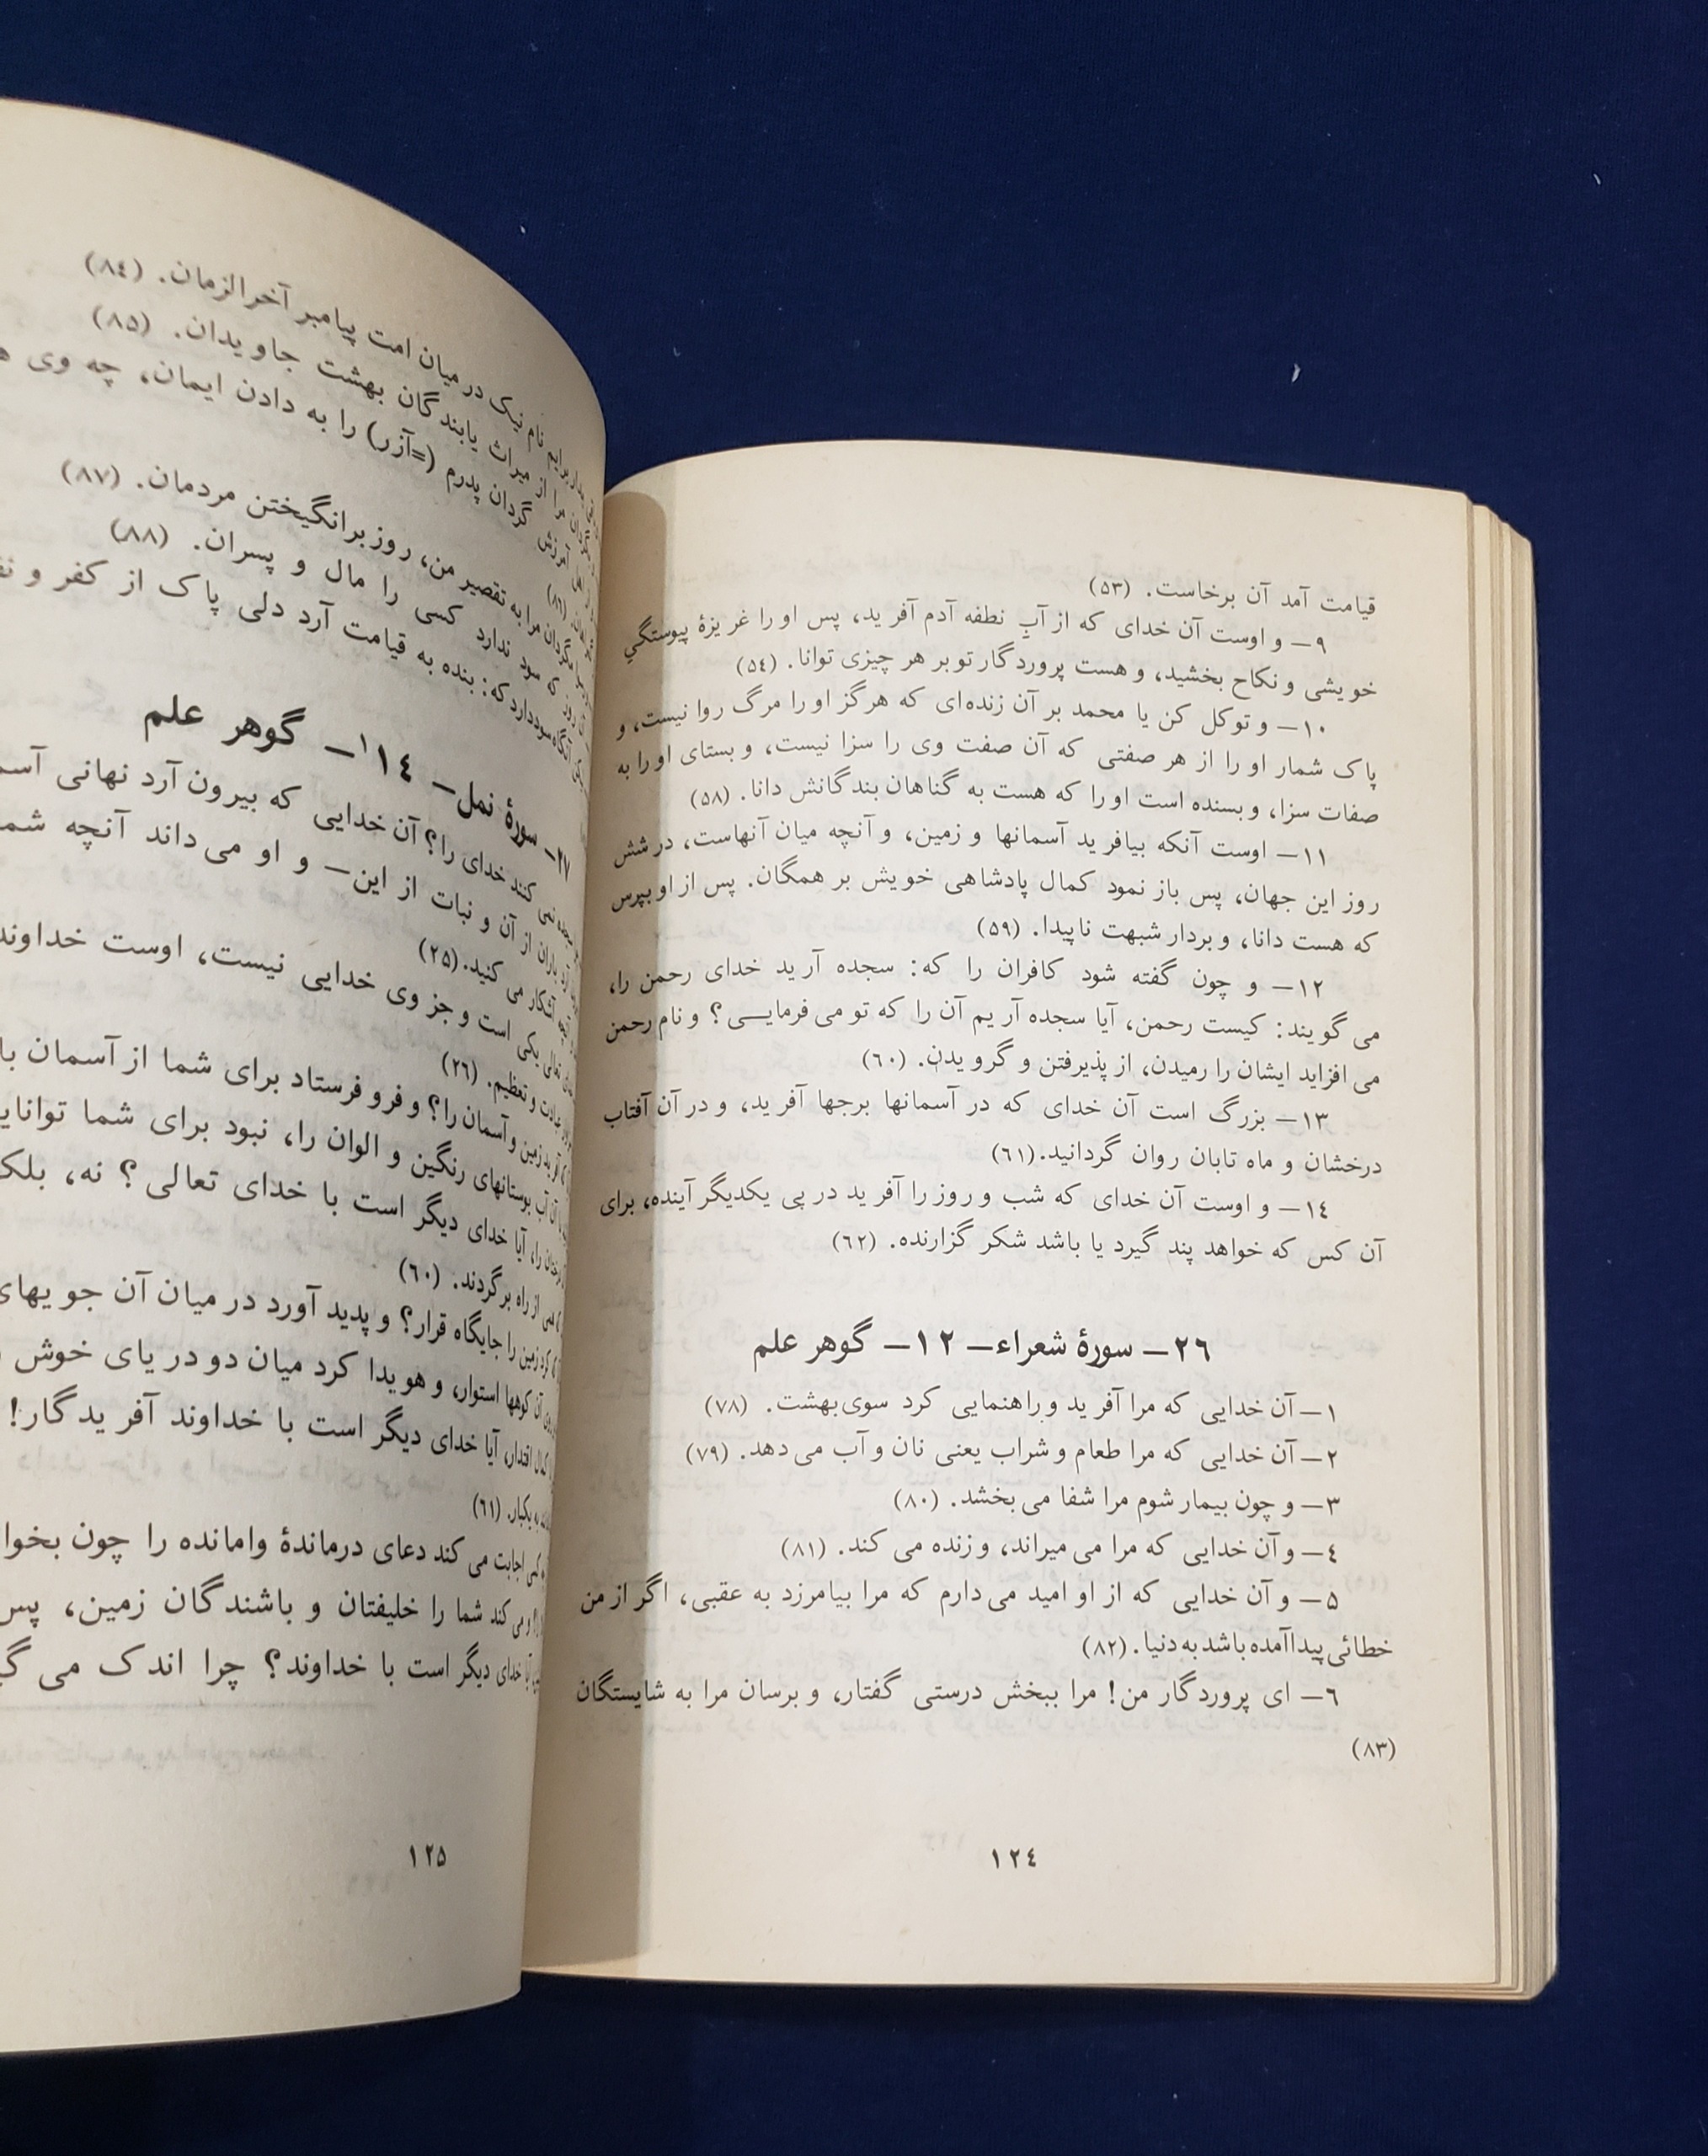 قیامت آمد آن برخاست. (۵۳)
۹ــ و اوست آن خدای که از آبِ نطفه آدم آفرید، پس او را غریزهٔ پیوستگیِ
خویشی و نکاح بخشید، و هست پروردگار تو بر هر چیزی توانا. (٥٤)
۱۰ــ و توکل کن یا محمد بر آن زنده‌ای که هرگز او را مرگ روا نیست، و
پاک شمار او را از هر صفتی که آن صفت وی را سزا نیست، و بستای او را به
صفات سزا، و بسنده است او را که هست به گناهان بندگانش دانا. (۵۸)
۱۱ــ اوست آنکه بیافرید آسمانها و زمین، و آنچه میان آنهاست، در شش
روز این جهان، پس باز نمود کمال پادشاهی خویش بر همگان. پس از او بپرس
که هست دانا، و بردار شبهت ناپیدا. (۵۹)
۱۲ــ و چون گفته شود کافران را که: سجده آرید خدای رحمن را،
می‌گویند: کیست رحمن، آیا سجده آریم آن را که تو می‌فرمایی؟ و نام رحمن
می‌افزاید ایشان را رمیدن، از پذیرفتن و گرویدن. (٦٠)
۱۳ــ بزرگ است آن خدای که در آسمانها برجها آفرید، و در آن آفتاب
درخشان و ماه تابان روان گردانید. (٦١)
١٤ــ و اوست آن خدای که شب و روز را آفرید در پی یکدیگر آینده، برای
آن کس که خواهد پند گیرد یا باشد شکر گزارنده. (٦٢)
٢٦ــ سورهٔ شعراء ــ ۱۲ــ گوهر علم
۱ــ آن خدایی که مرا آفرید و راهنمایی کرد سوی بهشت. (۷۸)
۲ــ آن خدایی که مرا طعام و شراب یعنی نان و آب می‌دهد. (۷۹)
۳ــ و چون بیمار شوم مرا شفا می‌بخشد. (۸۰)
٤ــ و آن خدایی که مرا می‌میراند، و زنده می‌کند. (۸۱)
۵ــ و آن خدایی که از او امید می‌دارم که مرا بیامرزد به عقبی، اگر از من
خطائی پیدا آمده باشد به دنیا. (۸۲)
٦ــ ای پروردگار من! مرا ببخش درستی گفتار، و برسان مرا به شایستگان
(۸۳)
١٢٤
برایم نام نیک در میان امت پیامبر آخرالزمان. (٨٤)
مرا از میراث یابندگان بهشت جاویدان. (۸۵)
آمرزش گردان پدرم (=آزر) را به دادن ایمان، چه وی
(٨٦)
مگردان مرا به تقصیر من، روز برانگیختن مردمان. (۸۷)
روز که سود ندارد کسی را مال و پسران. (۸۸)
آنگاه سود دارد که: بنده به قیامت آرد دلی پاک از کفر و
۲۷ــ سورهٔ نمل ــ ١٤¹ ــ گوهر علم
سجده نمی‌کنند خدای را؟ آن خدایی که بیرون آرد نهانی
باران از آن و نبات از این ــ و او می‌داند آنچه
آشکار می‌کنید. (۲۵)
تعالی یکی است و جز وی خدایی نیست، اوست
و تعظیم. (٢٦)
آفرید زمین و آسمان را؟ و فرو فرستاد برای شما از آسمان
آن آب بوستانهای رنگین و الوان را، نبود برای شما
را، آیا خدای دیگر است با خدای تعالی؟ نه،
از راه برگردند. (٦٠)
کرد زمین را جایگاه قرار؟ و پدید آورد در میان آن جویهای
آن کوهها استوار، و هویدا کرد میان دو دریای خوش
اقتدار، آیا خدای دیگر است با خداوند آفریدگار!
به یکبار. (٦١)
اجابت می‌کند دعای درماندهٔ وامانده را چون
می‌کند شما را خلیفتان و باشندگان زمین، پس
آیا خدای دیگر است با خداوند؟ چرا اندک
۱۲۵